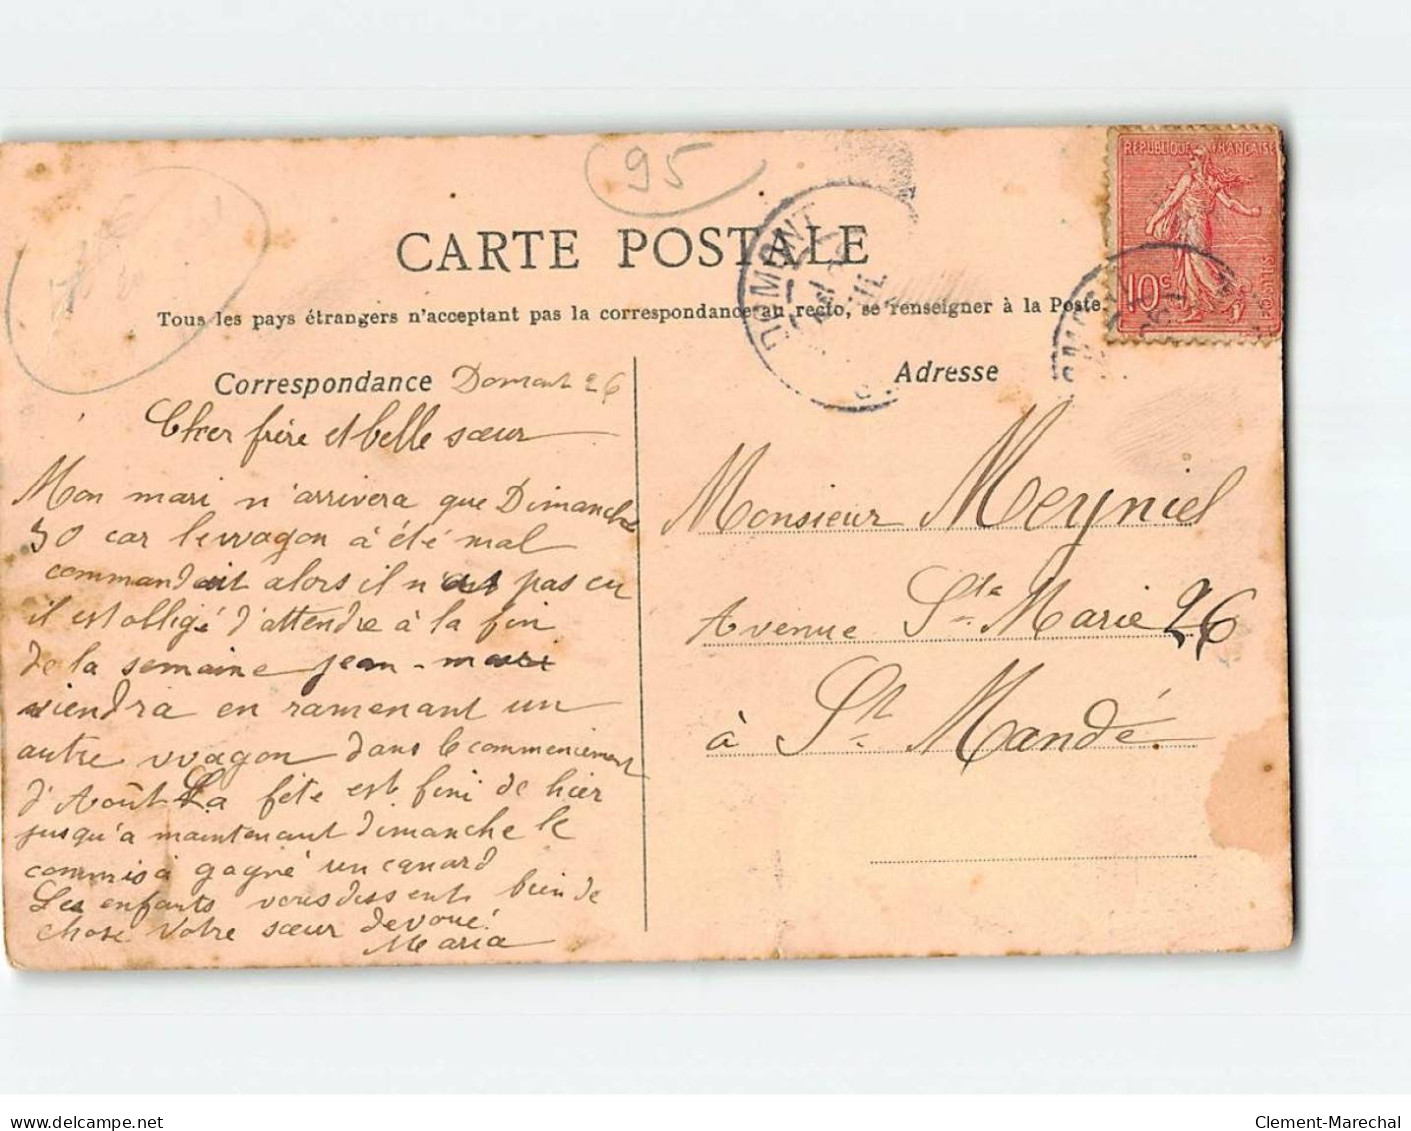 95
CARTE POSTALE
Tous les pays étrangers n'acceptent pas la correspondance au recto, se renseigner à la Poste.
REPUBLIQUE FRANÇAISE
10c
DOMONT
Correspondance Domont 26
Cher frère et belle sœur
Mon mari n'arrivera que Dimanche
30 car le wagon à été mal
commandait alors il n'est pas eu
il est obligé d'attendre à la fin
de la semaine Jean-mari
viendra en ramenant un
autre wagon dans le commencement
d'Août La fête est fini de hier
jusqu'a maintenant dimanche le
commis à gagné un canard
Les enfants vous dissent bien de
chose Votre sœur devoué
Maria
Adresse
Monsieur Meyniel
Avenue Ste Marie 26
à St Mandé.
delcampe.net
Clement-Marechal